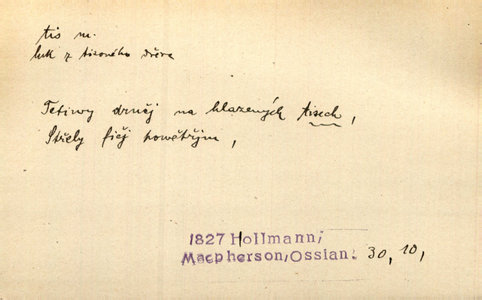 tis m.
luk z tisového dřeva
Tetiwy drnčj na hlazených tisech,
Střely fičj powětřjm,
1827 Hollmann,
Macpherson, Ossian. 30, 10,